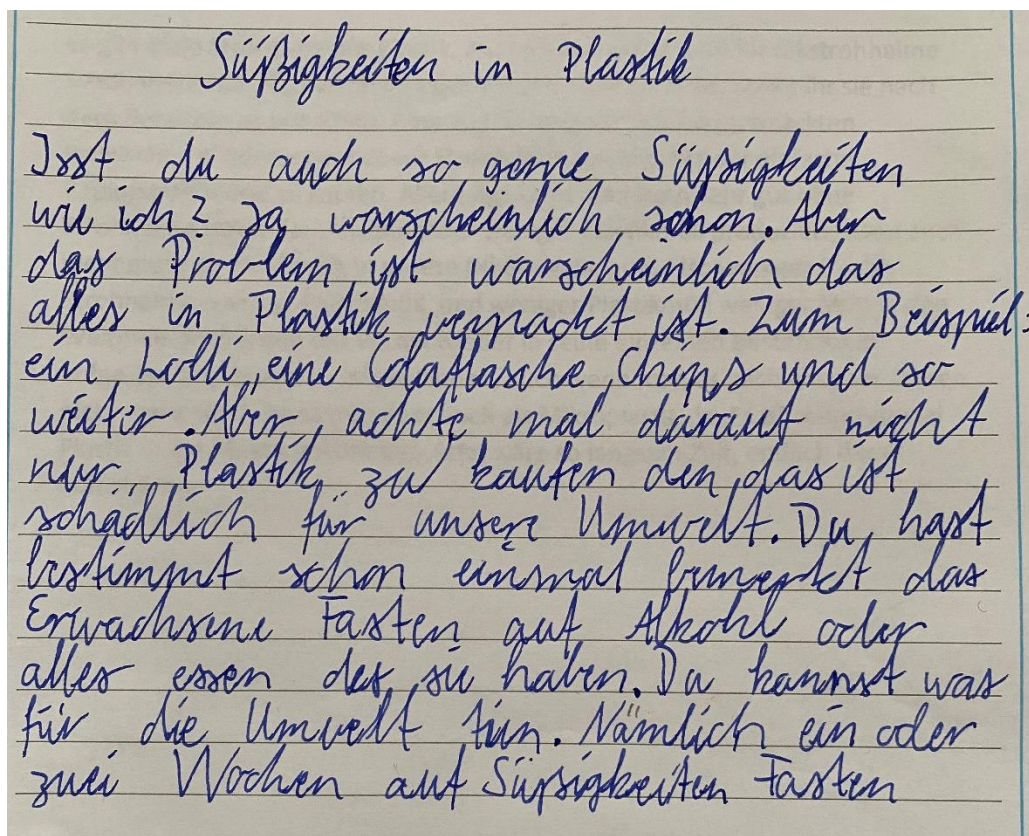 Süßigkeiten in Plastik
Isst du auch so gerne Süßigkeiten
wie ich? Ja warscheinlich schon. Aber
das Problem ist warscheinlich das
alles in Plastik verpackt ist. Zum Beispiel:
ein Lolli, eine Colaflasche, Chips und so
weiter. Aber achte mal darauf nicht
nur Plastik zu kaufen den das ist
schädlich für unsere Umwelt. Du hast
bestimmt schon einmal bemerkt das
Erwachsene Fasten auf Alkohl oder
alles essen des sie haben. Du kannst was
für die Umwelt tün. Nämlich ein oder
zwei Wochen auf Süßigkeiten Fasten